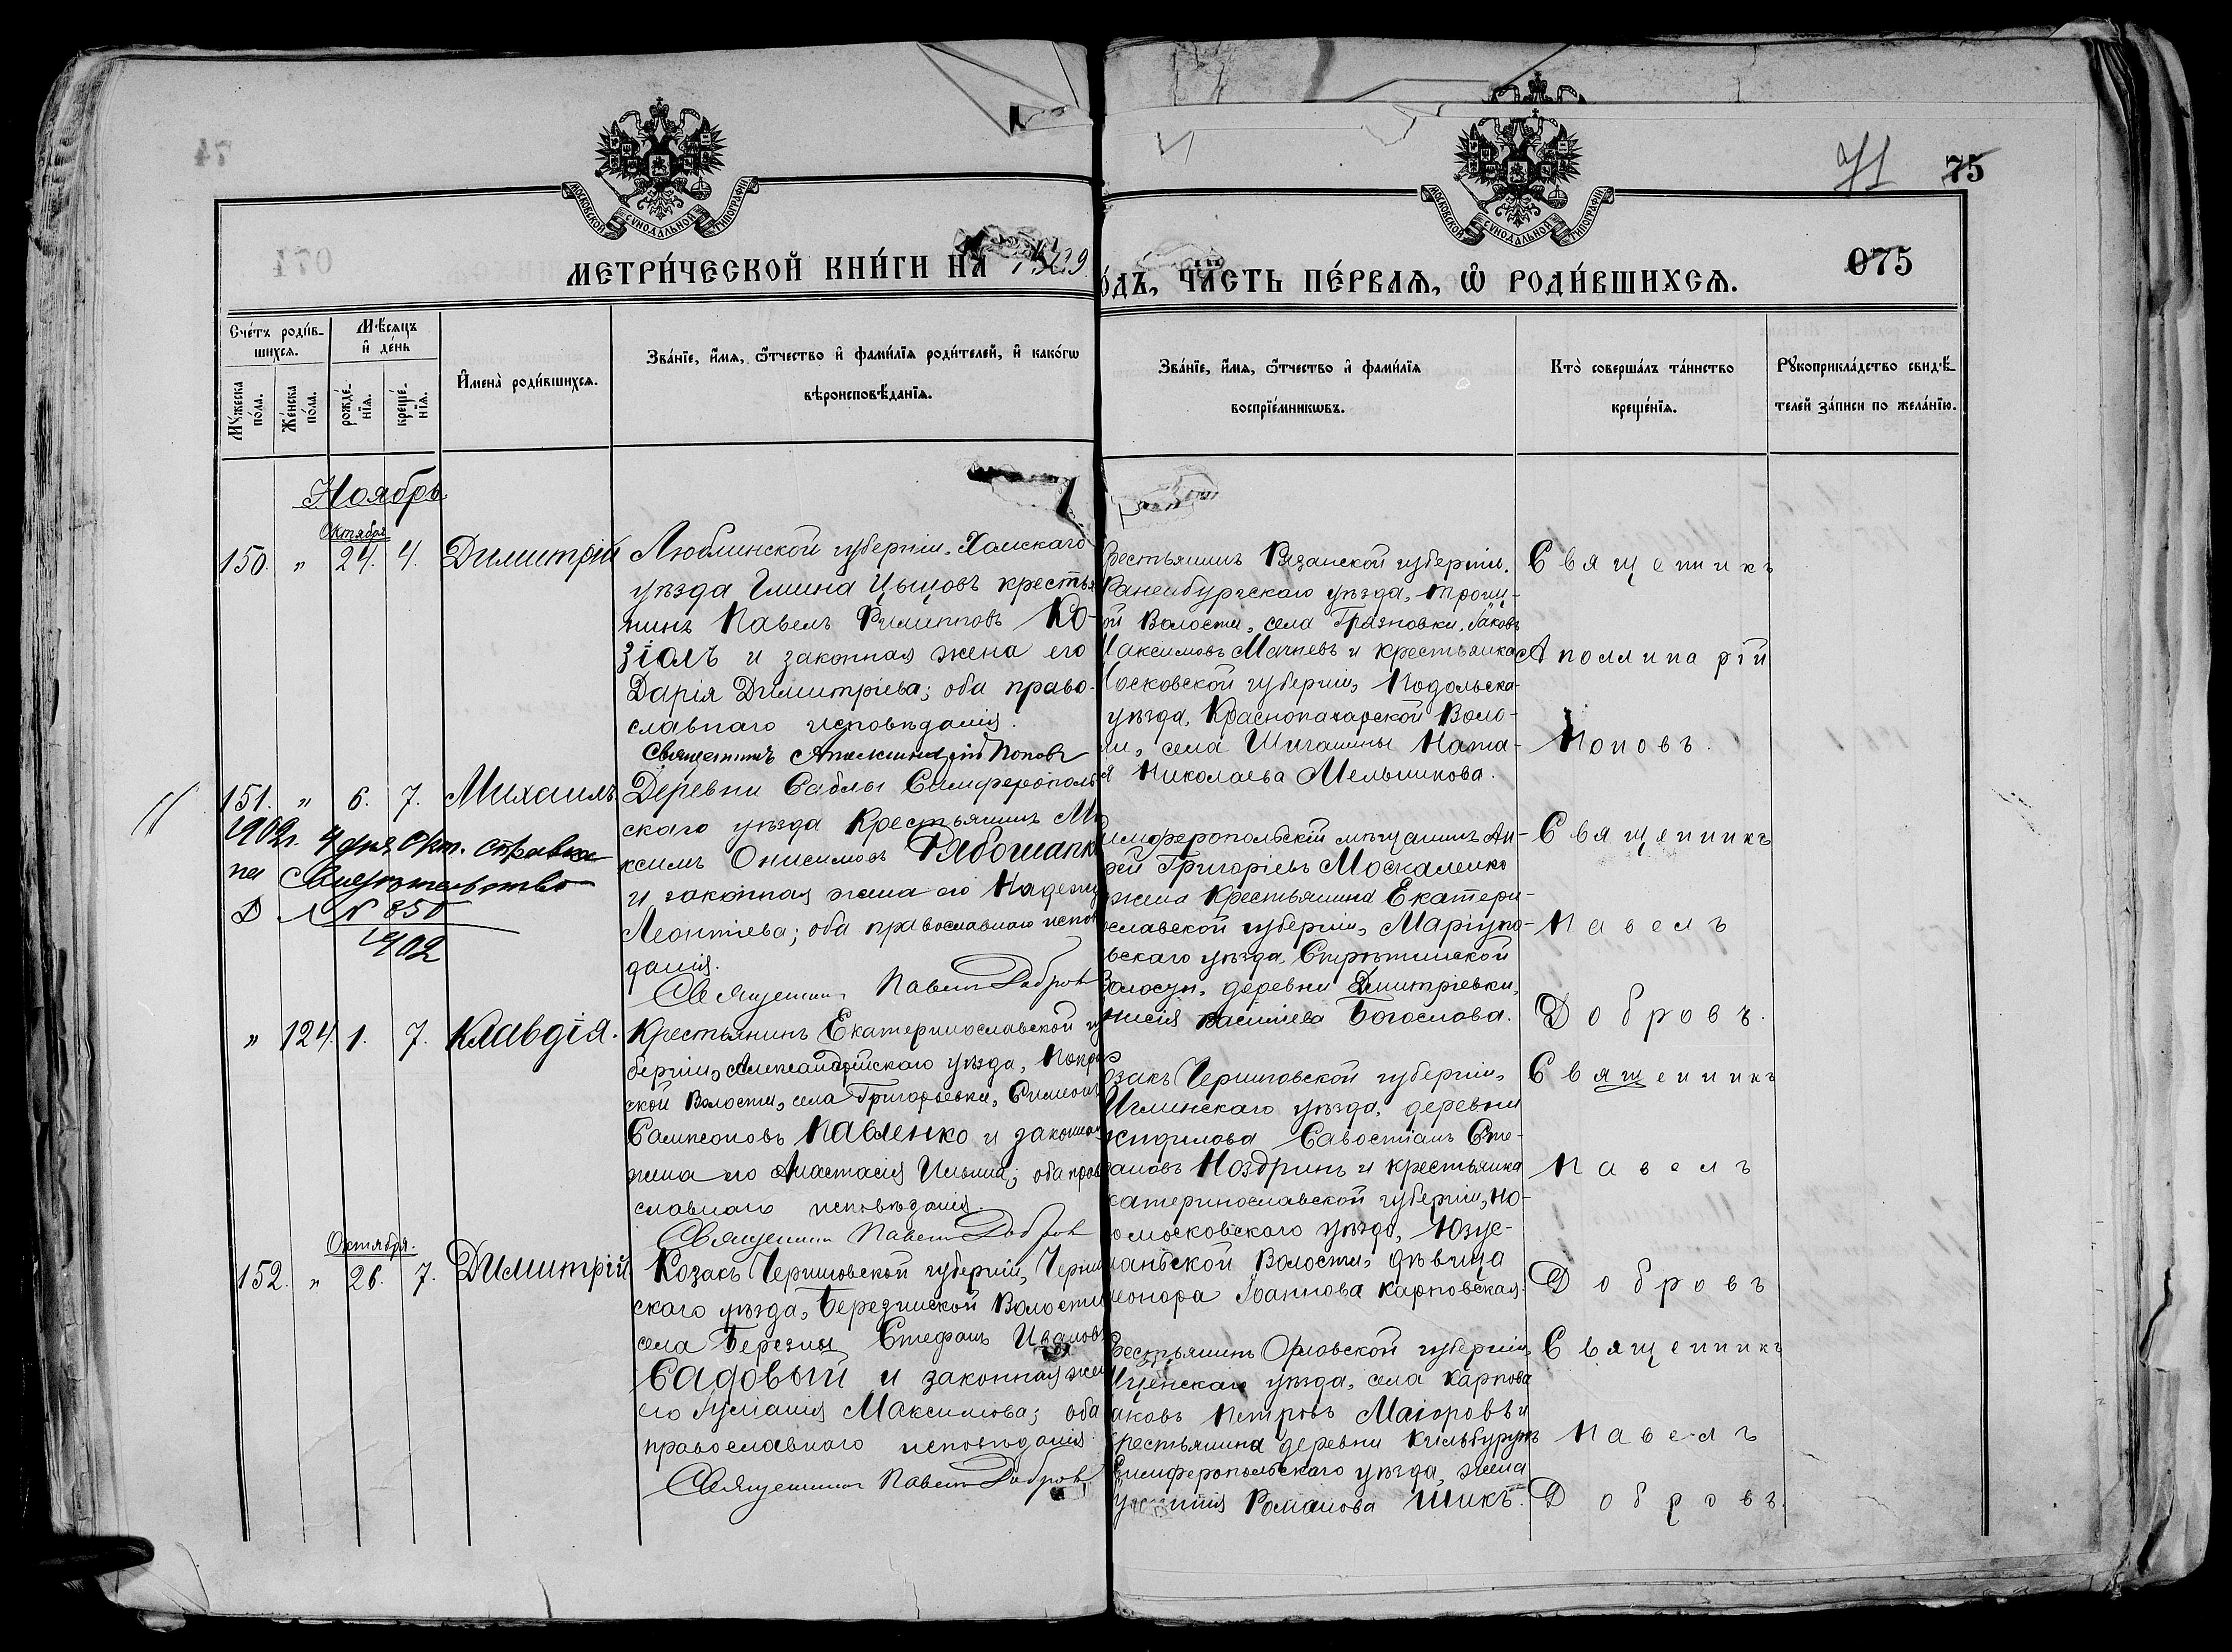 74
МОСКОВСКОЙ СѴНОДАЛЬНОЙ ТИПОГРАФІИ
МОСКОВСКОЙ СѴНОДАЛЬНОЙ ТИПОГРАФІИ
71 75
074
075
МЕТРИ́ЧЕСКОЙ КНИ́ГИ НА
О́ДЪ, ЧА́СТЬ ПЕ́РВАѦ, Ѡ҆ РОДИ́ВШИХСѦ.
Сче́тъ роди́в-
шихсѧ.
Мꙋ́жеска по́ла.
Же́нска по́ла.
Мѣ́сѧцъ
и҆ де́нь
рожде́-
нїѧ.
креще́-
нїѧ.
И҆мена̀ роди́вшихсѧ.
Зва́нїе, и҆́мѧ, ѻ҆́тчество и҆ фами́лїѧ роди́телей, и҆ како́гѡ
вѣроисповѣ́данїѧ.
Зва́нїе, и҆́мѧ, ѻ҆́тчество и҆ фами́лїѧ
воспрїе́мникѡвъ.
Кто̀ соверша́лъ та́инство
креще́нїѧ.
Рꙋкоприкла́дство свидѣ́-
телей за́писи по жела́нїю.
Ноябрь
Октября
150. " 24. 4. Димитрій
Люблинской губерніи, Холмскаго
уѣзда Гмина Цыцовъ крестья
нинъ Павелъ Филипповъ Ко-
зіолъ и законная жена его
Дарія Димитріева; оба право-
славнаго исповѣданія.
Священникъ Аполлинарій Поповъ
рестьянинъ Рязанской губерніи,
Раненбургскаго уѣзда, Троиц-
ой Волости, села Грязновки, Іаковъ
Максимовъ Мачневъ и крестьянка
Московской губерніи, Подольска-
уѣзда, Краснопахарской Воло-
ти, села Шигашины Ната-
я Николаева Мельникова.
Священникъ
Аполлинарій
Поповъ.
151. " 6. 7. Михаилъ
1902г. 4 дня Окт. справка
на Свидѣтельство
№ 850
1902
Деревни Саблы Симферополь
скаго уѣзда Крестьянинъ Ма
ксимъ Онисимовъ Рябошапк
и законная жена его Надежд
Леонтіева; оба православнаго испов
данія.
Священникъ Павелъ Добровъ
имферопольскій мѣщанинъ Ан-
рей Григоріевъ Москаленко
жена Крестьянина Екатери-
ославской губерніи, Маріупо-
ьскаго уѣзда, Стрѣтинской
Волости, деревни Дмитріевки,
нисія Василіева Богослова.
Священникъ
Павелъ
Добровъ.
" 124. 1. 7. Клавдія.
Крестьянинъ Екатеринославской гу
берніи, Александрійскаго уѣзда, Покров
ской Волости, села Григорьевки, Симеонъ
Сампсоновъ Павленко и законная
жена его Анастасія Ильина; оба прав
славнаго исповѣданія.
Священникъ Павелъ Добровъ
озакъ Черниговской губерніи,
Мглинскаго уѣзда, деревни
Савостіанъ Сте-
пановъ Ноздринъ и крестьянка
катеринославской губерніи, Но-
омосковскаго уѣзда, Юзус-
Волости, дѣвица
леонора Іоаннова Карповская.
Священникъ
Павелъ
Добровъ
Октября.
152. " 26. 7. Димитрій
Козакъ Черниговской губерніи, Черни
скаго уѣзда, Березинской Волости
села Березны Стефанъ Ивановъ
Садовый и законная жен
его Іуліанія Максимова; оба
православнаго исповѣданія.
Священникъ Павелъ Добровъ
рестьянинъ Орловской губерніи
Мценскаго уѣзда, села Карпова
аковъ Петровъ Маіоровъ и
рестьянина деревни Кильбурунъ
Симферопольскаго уѣзда, жена
Романова Шикъ.
Священникъ
Павелъ
Добровъ.